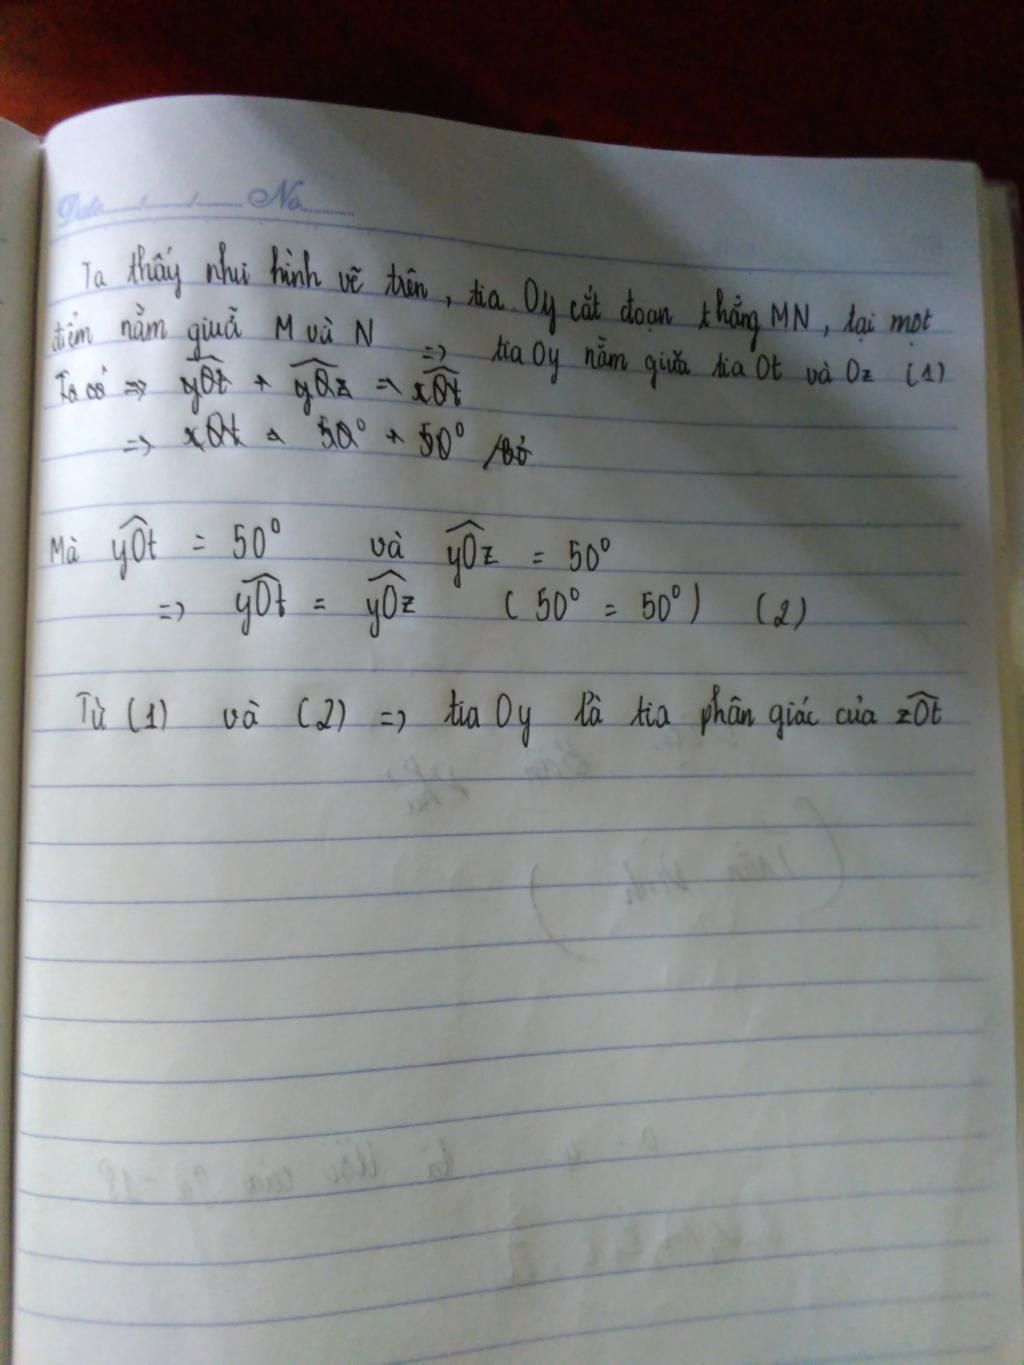 Date No
Ta thấy như hình vẽ trên, tia Oy cắt đoạn thẳng MN, tại một
điểm nằm giữa M và N => tia Oy nằm giữa tia Ot và Oz (1)
Ta có => yOt + yOz => xOt
=> xOt = 50° + 50°
Mà yOt = 50° và yOz = 50°
=> yOt = yOz (50° = 50°) (2)
Từ (1) và (2) => tia Oy là tia phân giác của zOt